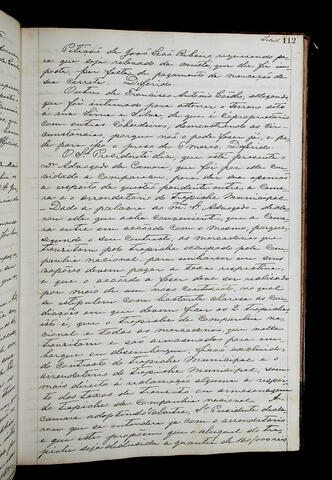 112
Petição de João José Ribeiro requerendo pa-
ra que seja relevado da multa, que lhe foi im-
posta por falta de pagamento de marcação de
sua carreta. Deferido.
Outra de Francisco Antonio Coelho, allegando
que foi intimado para aterrar o terreno sito
à rua Senna e Silva, de que é coproprietario
com outros 4 herdeiros, demonstrando as cir-
cunstancias, porque não o pode fazer já, e pe-
de para isso o praso de 6 meses. Deferido.
O Sr. Presidente diz, que está presente o
Dr. Advogado da Camara, que foi por elle con-
vidado a comparecer, para dar sua opinião
a respeito da questão pendente entre a Cama-
ra e o arrendatario do Trapiche Municipal.
Dada a palavra ao mmo. Sr. Advogado - decla-
rou elle que acha conveniente, que a Cama-
ra entre em accordo com o mesmo, porque,
segundo o seu contracto, as mercadorias que
transitam pelo trapiche occupado pela Com-
panhia nacional, para embarcar em seus
vapores devem pagar a taxa respectiva,
e que o accordo a fazer deve ser realisado
por meio de um novo contracto, no qual
se estipulem com bastante clareza as con-
dições em que devem ficar os 2 trapiches
isto é, que o trapiche da Companhia na-
cional e todas as mercadorias que nelle
transitam e são armasenadas para em-
barque ou desembarque, ficão excluidas
do contracto do Trapiche Municipal e o
arrendatario do Trapiche Municipal, sem
mais direito á reclamação alguma a respei-
to das taxas de transito ou armasenagem
do trapiche da Companhia nacional. A
Camara adoptando o alvitre, o Sr. Presidente decla-
rou que se entendera já com o arrendatario
e que este propusera que o aluguel do tra-
piche seja deduzida a quantia de 160/000 reis